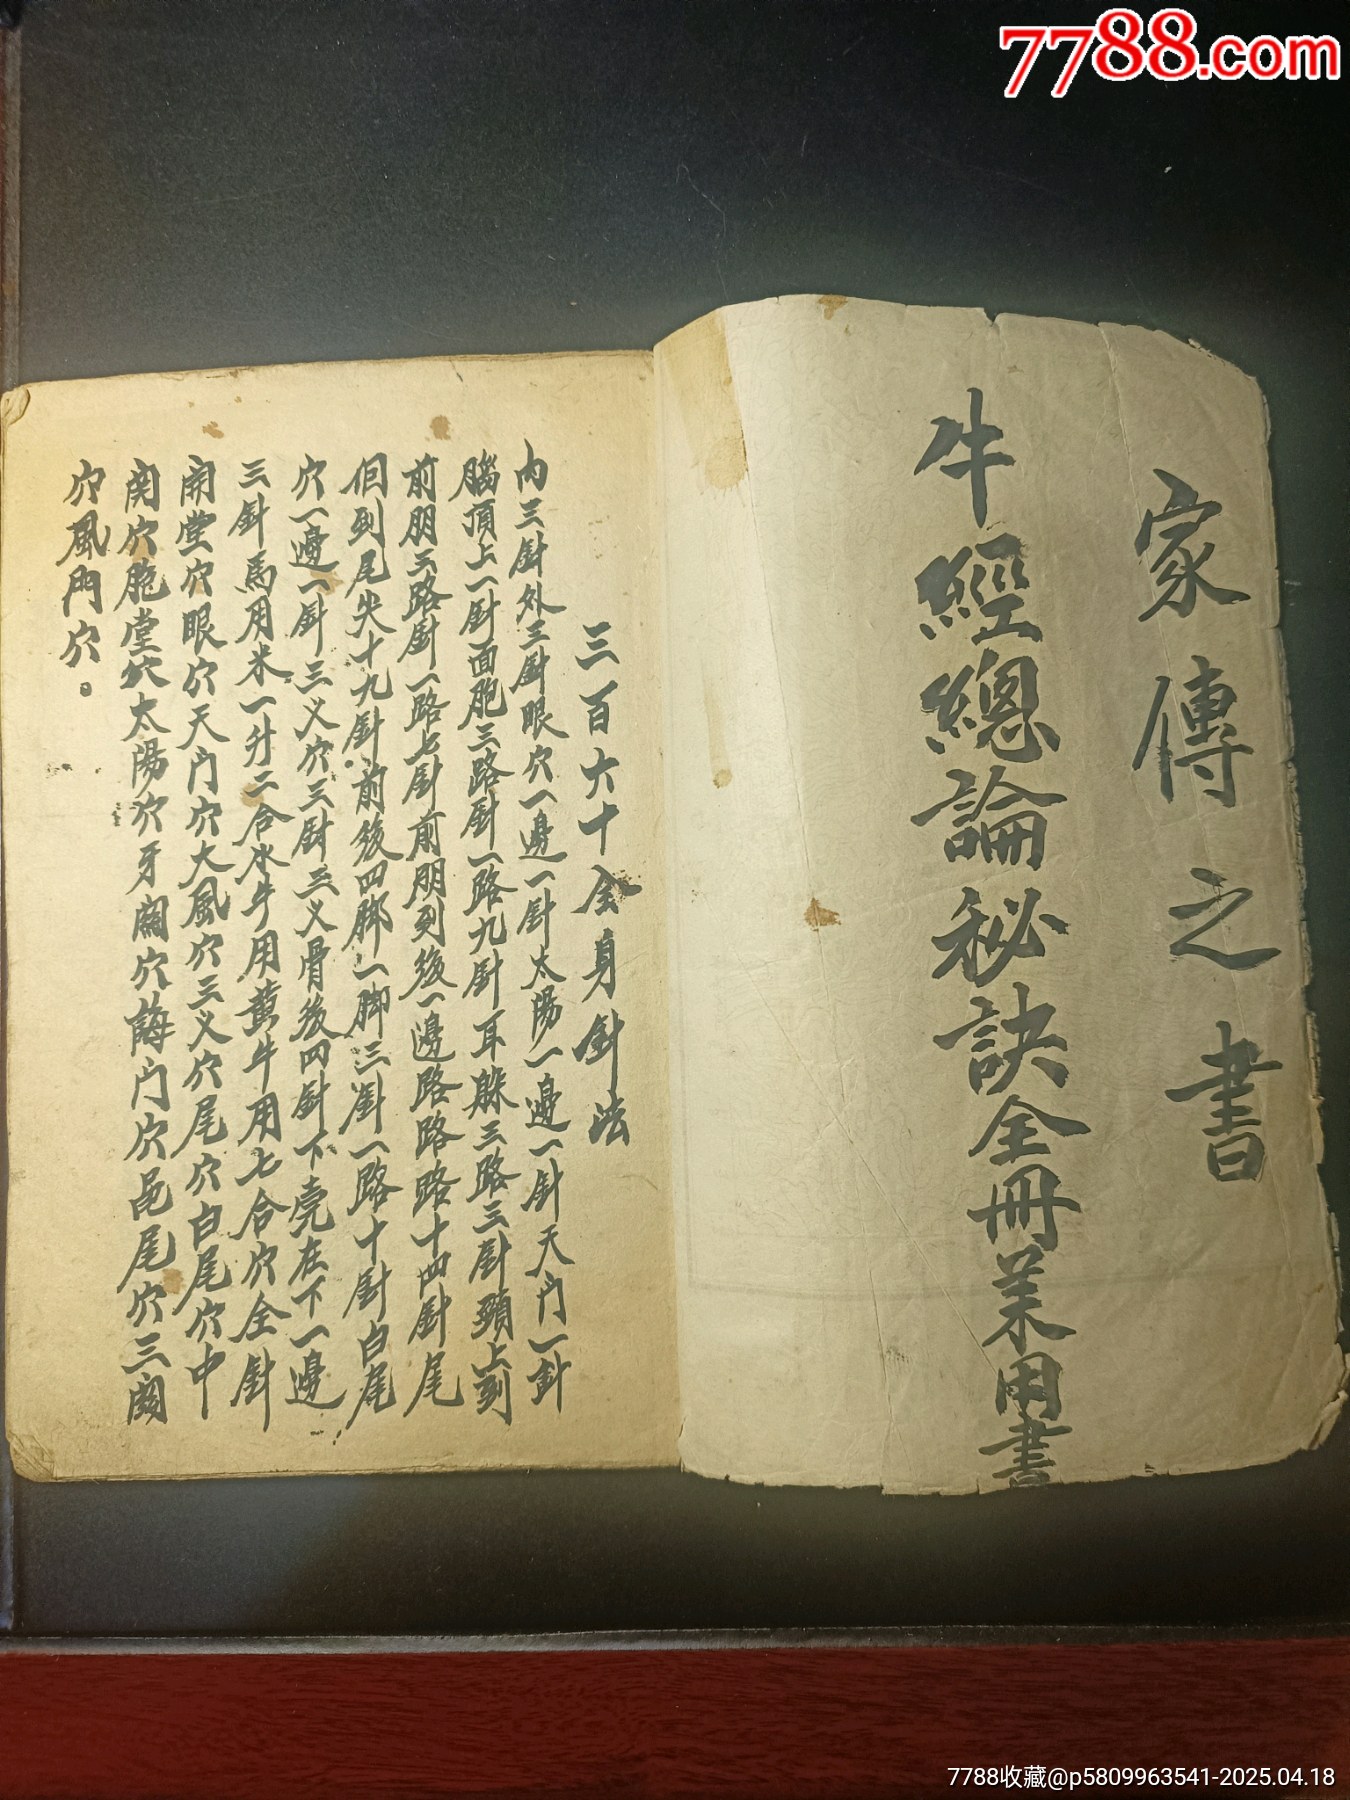 7788.com
家傳之書
牛經總論秘訣全冊業用書
三百六十全身針法
內三針外三針眼穴一邊一針太陽一邊一針天门一針
腦頂上一針面胞三路針一路九針耳躲三路三針頸上到
前朋三路針一路七針前朋到後一邊路路路十四針尾
佪到尾尖十九針前後四脚一脚三針一路十針白尾
穴一邊一針三义穴三針三义骨後四針下壳在下一邊
三針馬用米一升二合水牛用黃牛用七合穴全針
開堂穴眼穴天门穴大風穴三义穴尾穴白尾穴中
関穴胞堂穴太陽穴牙關穴海门穴邑尾穴三関
穴風門穴。
7788收藏@p5809963541-2025.04.18